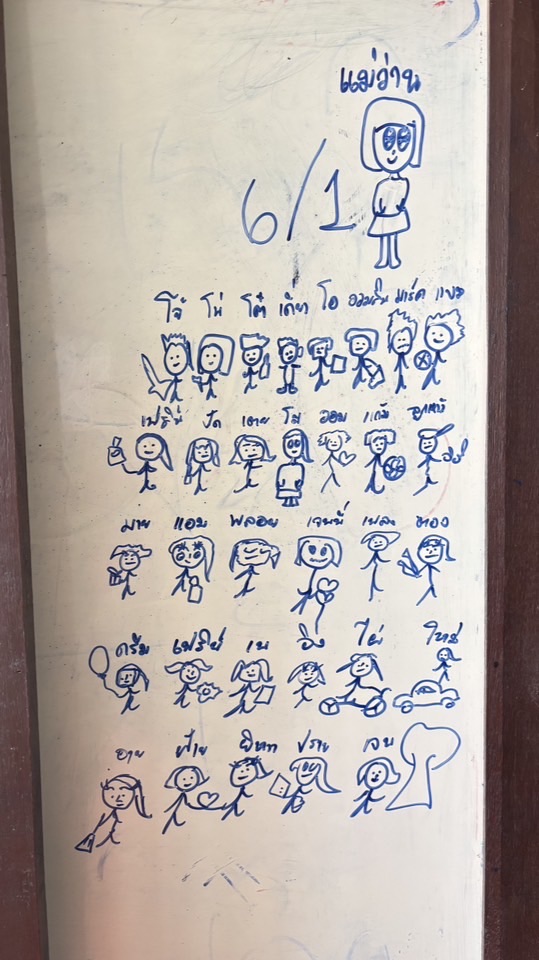 แม่ว่าน
6/1
โจ้ โน่ โต๋ เดียว โอ ออมสิน มาร์ค
เฟิร์น ปัด เตย โส ออม แก้ม
มาย แอม พลอย เจนนี่ เพลง ทอง
ครีม เฟิร์น เน อิง ไผ่ ใหม่
อาย ฝ้าย พิพา ปราย เจน